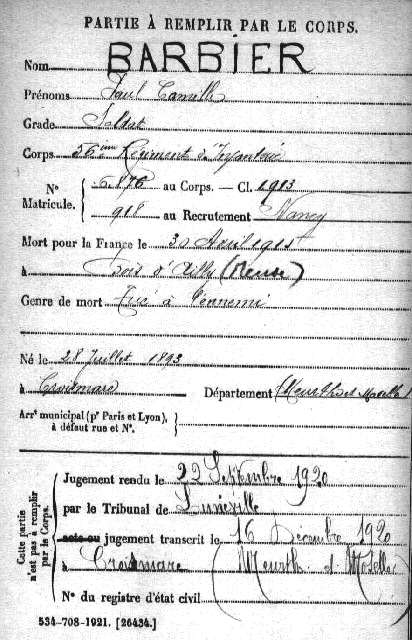 PARTIE À REMPLIR PAR LE CORPS.
Nom BARBIER
Prénoms Paul Camille
Grade Soldat
Corps 56ème Régiment d'Infanterie
N° Matricule. { 6.876 au Corps. — Cl. 1913
918 au Recrutement Nancy
Mort pour la France le 30 Avril 1915
à Bois d'Ailly (Meuse)
Genre de mort Tué à l'ennemi
Né le 28 Juillet 1893
à Croismare Département (Meurthe et Moselle)
Arrt municipal (pr Paris et Lyon), à défaut rue et N°.
Cette partie n'est pas à remplir par le Corps.
Jugement rendu le 22 Septembre 1920
par le Tribunal de Lunéville
acte ou jugement transcrit le 16 Décembre 1920
à Croismare (Meurthe et Moselle)
N° du registre d'état civil
534-708-1921. [26434.]